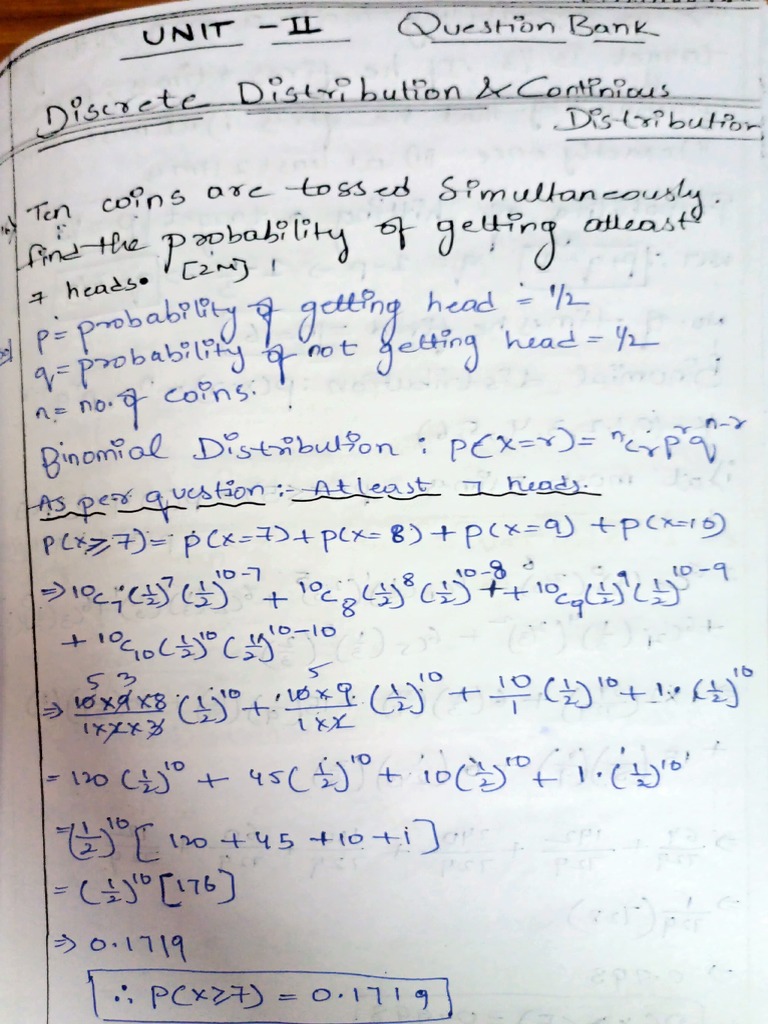 UNIT - II Question Bank
Discrete Distribution & Continious
Distribution
Ten coins are tossed Simultaneously.
find the probability of getting atleast
7 heads. [2M]
p = probability of getting head = 1/2
q = probability of not getting head = 1/2
n = no. of coins.
Binomial Distribution : P(X=r) = ⁿCᵣ pʳ qⁿ⁻ʳ
As per question :- Atleast 7 heads.
P(X≥7) = P(X=7) + P(X=8) + P(X=9) + P(X=10)
⇒ ¹⁰C₇ (1/2)⁷ (1/2)¹⁰⁻⁷ + ¹⁰C₈ (1/2)⁸ (1/2)¹⁰⁻⁸ + + ¹⁰C₉ (1/2)⁹ (1/2)¹⁰⁻⁹
+ ¹⁰C₁₀ (1/2)¹⁰ (1/2)¹⁰⁻¹⁰
5 3 5
⇒ 10×9×8/1×2×3 · (1/2)¹⁰ + 10×9/1×2 (1/2)¹⁰ + 10/1 (1/2)¹⁰ + 1 · (1/2)¹⁰
= 120 (1/2)¹⁰ + 45 (1/2)¹⁰ + 10 (1/2)¹⁰ + 1 · (1/2)¹⁰
= (1/2)¹⁰ [120 + 45 + 10 + 1]
= (1/2)¹⁰ [176]
⇒ 0.1719
∴ P(X≥7) = 0.1719